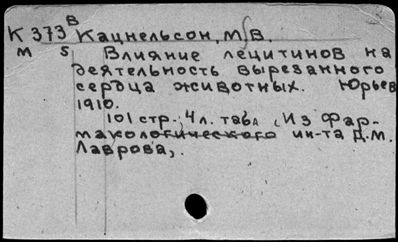 К 373 В Кацнельсон, М. В.
М 5 Влияние лецитинов на
деятельность вырезанного
сердца животных. Юрьев
1910.
101 стр., 4 л. табл. Из Фар-
макологического ин-та Д.М.
Лаврова,.